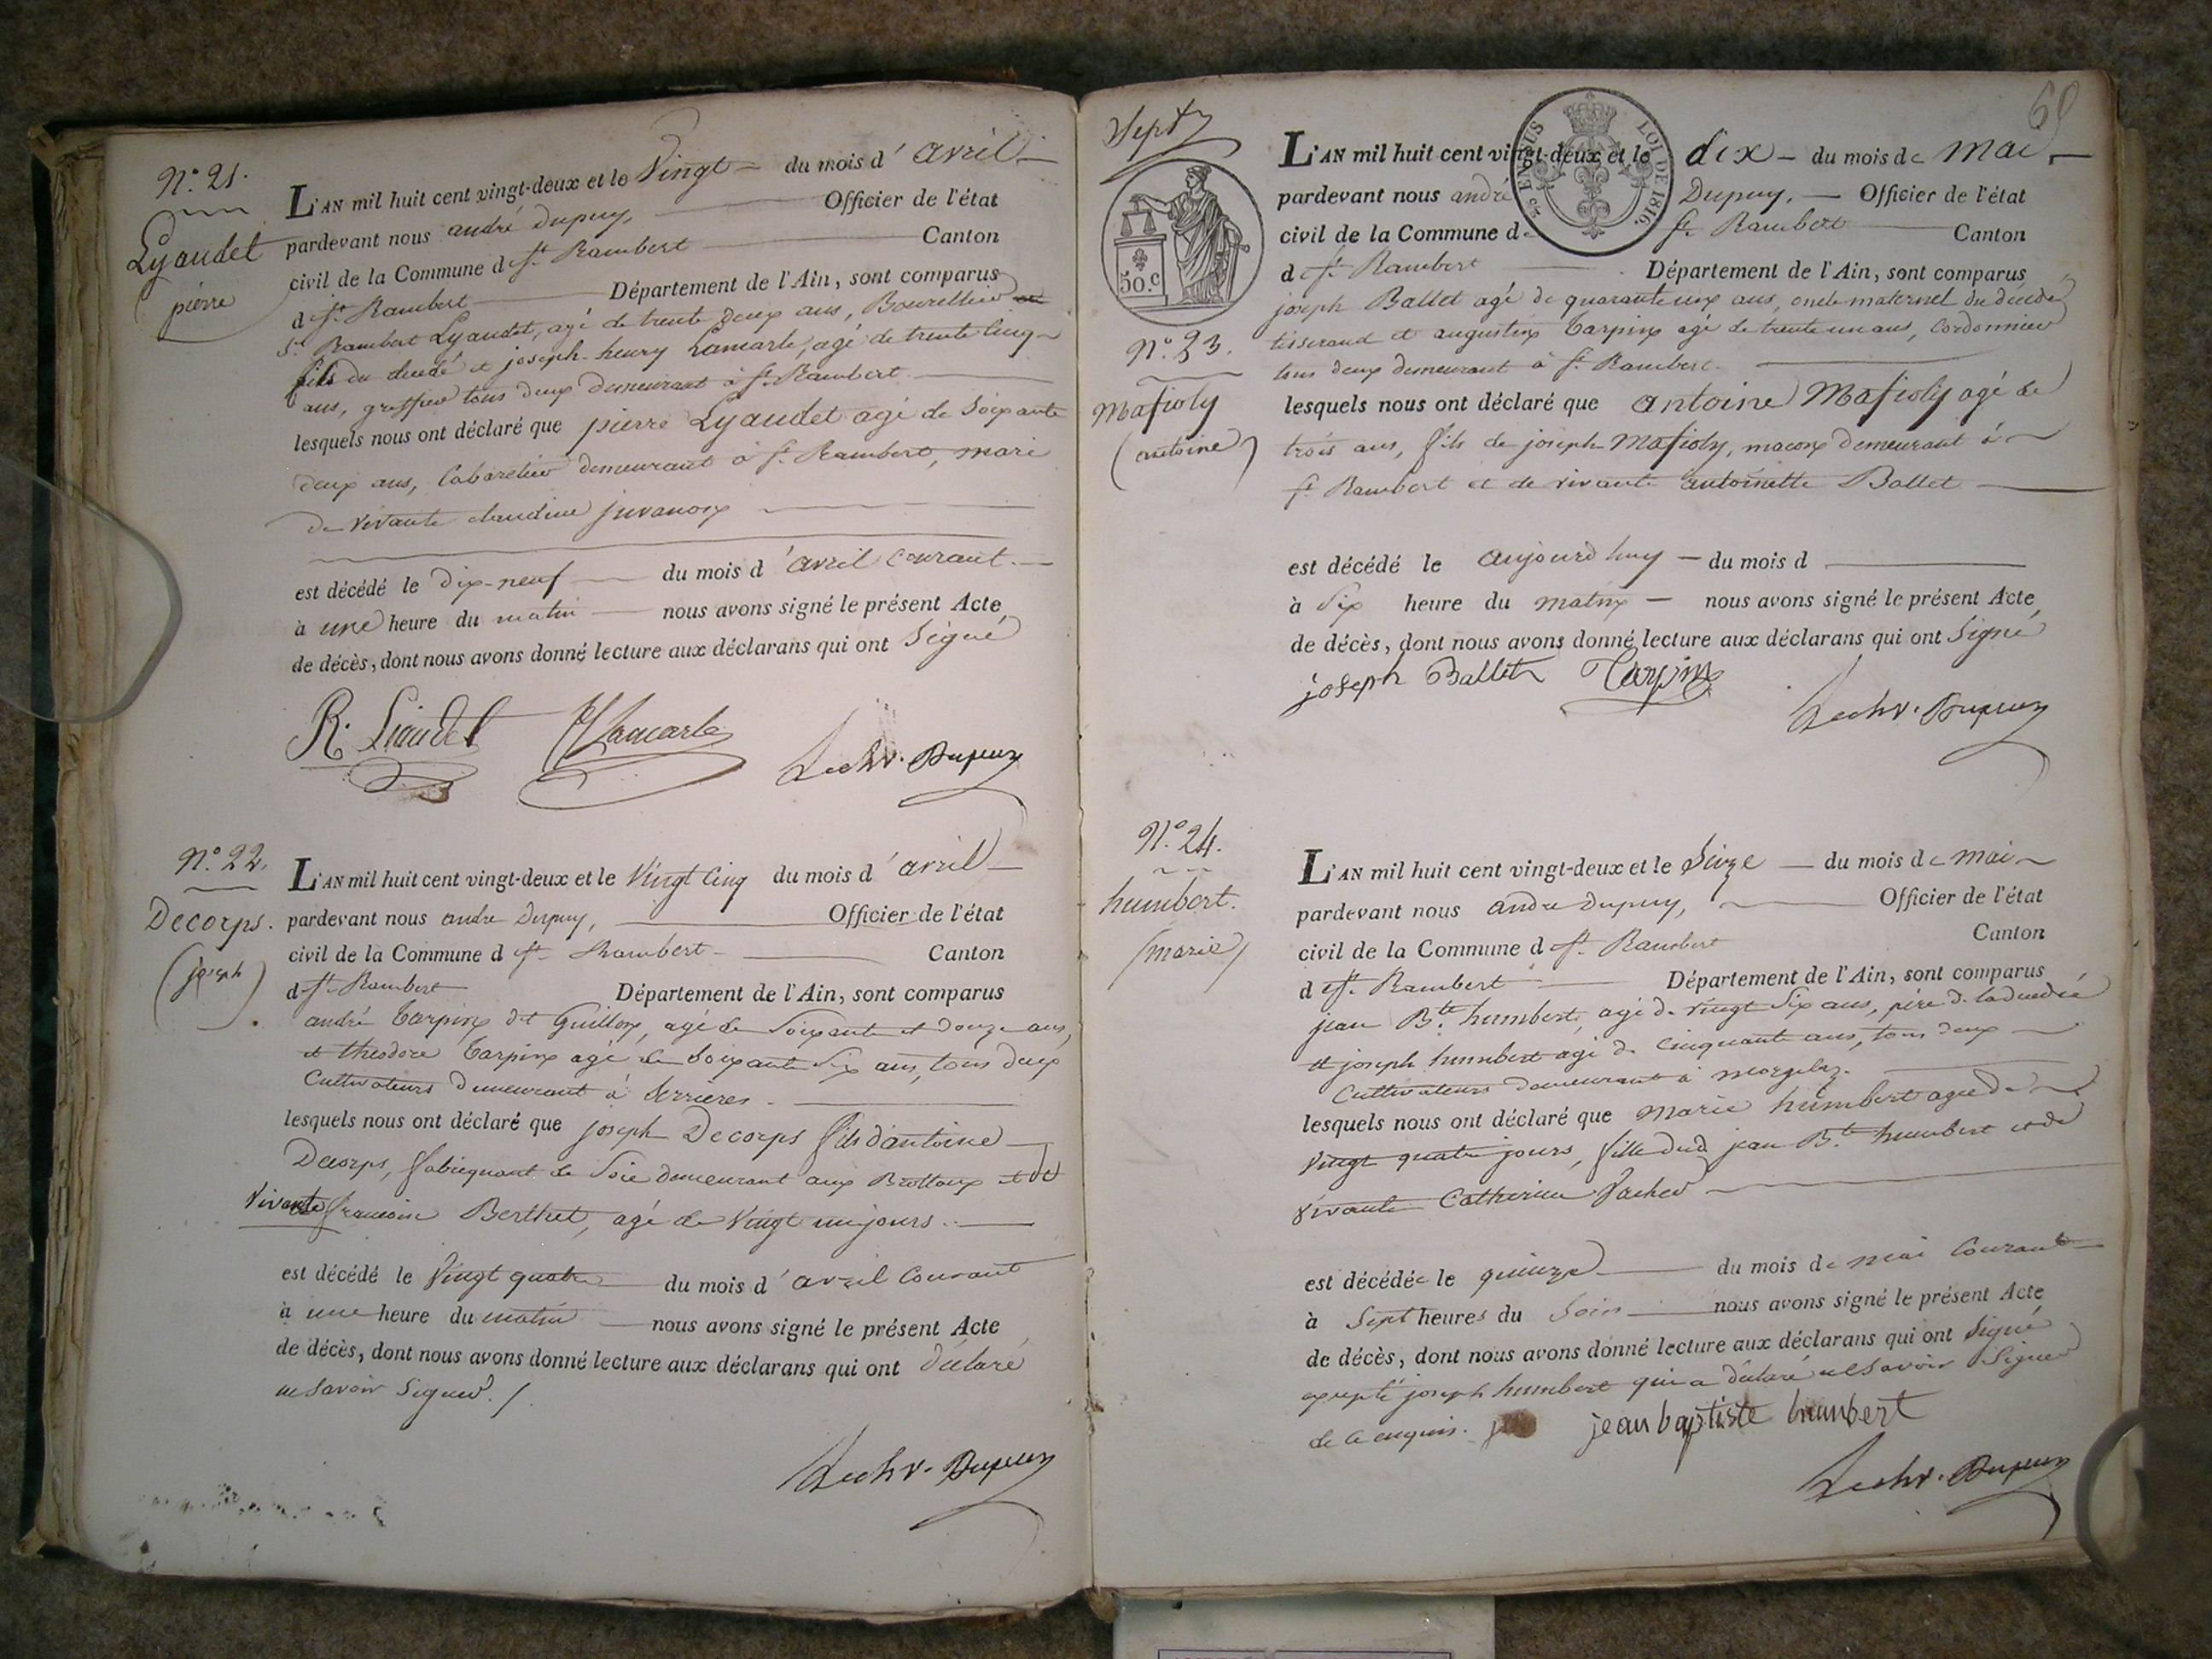 N.° 21.
Lyaudet
pierre
L'AN mil huit cent vingt-deux et le Vingt du mois d' avril
pardevant nous andré Dupuy, Officier de l'état
civil de la Commune d St. Rambert Canton
d St. Rambert Département de l'Ain, sont comparus
St. Rambert Lyaudet, agé de trente deux ans, Bourellier
fils du décédé et joseph-henry Lamarle, agé de trente cinq
ans, greffier tous deux demeurant à St. Rambert
lesquels nous ont déclaré que pierre Lyaudet agé de soixante
deux ans, Cabaretier demeurant à St. Rambert, mari
de vivante claudine juvanon
est décédé le dix-neuf du mois d' avril courant.
à une heure du matin nous avons signé le présent Acte
de décès, dont nous avons donné lecture aux déclarans qui ont Signé
R. Liaudet Lamarle Dupuy
N.° 22.
Decorps.
(joseph)
L'AN mil huit cent vingt-deux et le Vingt Cinq du mois d' avril
pardevant nous andré Dupuy, Officier de l'état
civil de la Commune d St. Rambert Canton
d St. Rambert Département de l'Ain, sont comparus
andré Tarpin dit Guillon, agé de Soixante et douze ans,
et théodore Tarpin agé de Soixante Six ans, tous deux
Cultivateurs demeurant à Serrières.
lesquels nous ont déclaré que joseph Decorps fils d'antoine
Decorps, fabriquant de Soie demeurant aux Brottaux et de
Vivante francoise Berthet, agé de Vingt un jours.
est décédé le Vingt quatre du mois d' avril Courant
à une heure du matin nous avons signé le présent Acte
de décès, dont nous avons donné lecture aux déclarans qui ont déclaré
ne savoir Signer. /
Dupuy
60
Sept
50. C
EN SUS
LOI DE 1816.
N.° 23.
Mafioly
(antoine)
L'AN mil huit cent vingt-deux et le dix du mois de mai
pardevant nous andré Dupuy, Officier de l'état
civil de la Commune de St. Rambert Canton
de St. Rambert Département de l'Ain, sont comparus
joseph Ballet agé de quarante ans, oncle maternel du décédé
tisserand et augustin Tarpin agé de trente un ans, Cordonnier
tous deux demeurant à St. Rambert.
lesquels nous ont déclaré que antoine Mafioly agé de
trois ans, fils de joseph Mafioly, macon demeurant à
St. Rambert et de vivante antoinette Ballet
est décédé le aujourd huy du mois d
à Six heure du matin nous avons signé le présent Acte
de décès, dont nous avons donné lecture aux déclarans qui ont Signé
joseph Ballet Tarpin
Dupuy
N.° 24.
humbert.
(marie)
L'AN mil huit cent vingt-deux et le Seize du mois de mai
pardevant nous andré Dupuy, Officier de l'état
civil de la Commune d St. Rambert Canton
d St. Rambert Département de l'Ain, sont comparus
jean B.te humbert, agé de vingt Six ans, père de la décédée
et joseph humbert agé de Cinquante ans, tous deux
Cultivateurs demeurant à morgelaz.
lesquels nous ont déclaré que marie humbert agée de
Vingt quatre jours, fille dud jean B.te humbert et de
vivante Catherine
est décédée le quinze du mois de mai Courant
à Sept heures du Soir nous avons signé le présent Acte
de décès, dont nous avons donné lecture aux déclarans qui ont Signé
excepté joseph humbert qui a déclaré ne Savoir Signer
de ce enquis. jean baptiste humbert
Dupuy